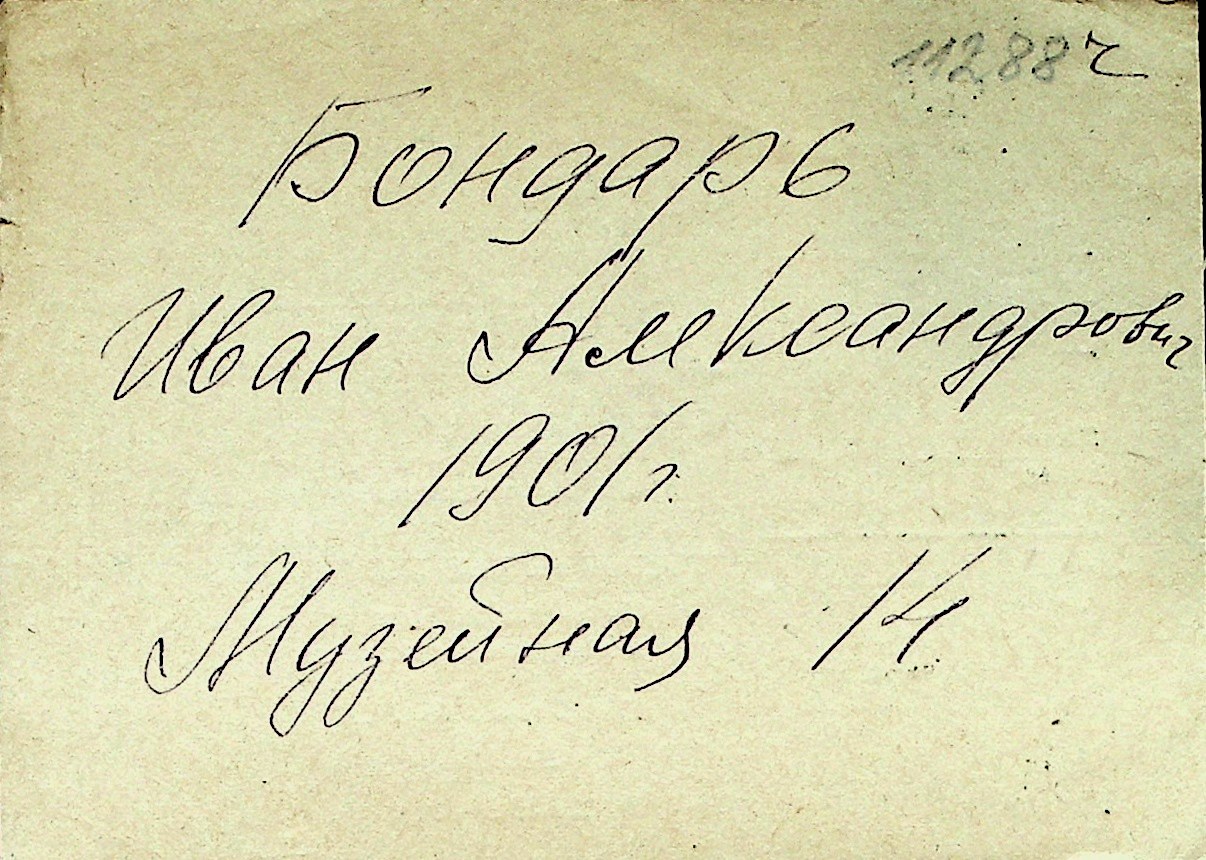 11288 ч
Бондарь
Иван Александрович
1901 г.
Музейная 14